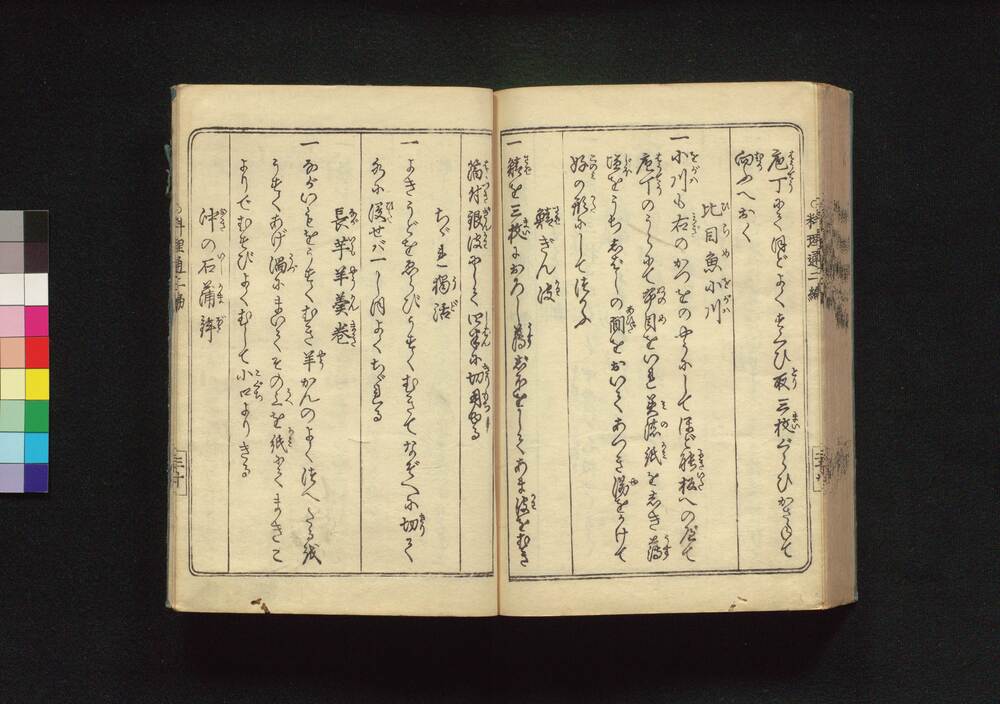 庖丁にてほどよくすくひ取三枚ぐらひかさねて
向ふへおく
比目魚小川
一小川も右のかつをのやうにしてほど能板へのばして
庖丁のうらにて布目をいれ美濃紙をしき薄
塩をうちしばしの間をおいてあつき湯をかけて
好の形にして遣ふ
鱚ぎん波
一鱚を三枚におろし薄しほをしてあま皮をむき
箔付銀皮やしく
切用ゆる
ちゞれ獨活
一よきうどをゑらびうすくむきてなゞへに切て
水に浸せバ一しほよくちゞれる
長芋羊羹巻
一ながいもをうすくむき羊かんのよく
うすくあげ渦にまいてその上を紙にてまきこ
よりにてむすびよくむして小口よりきる
沖の石蒲鉾
料理通二編
料理通二編